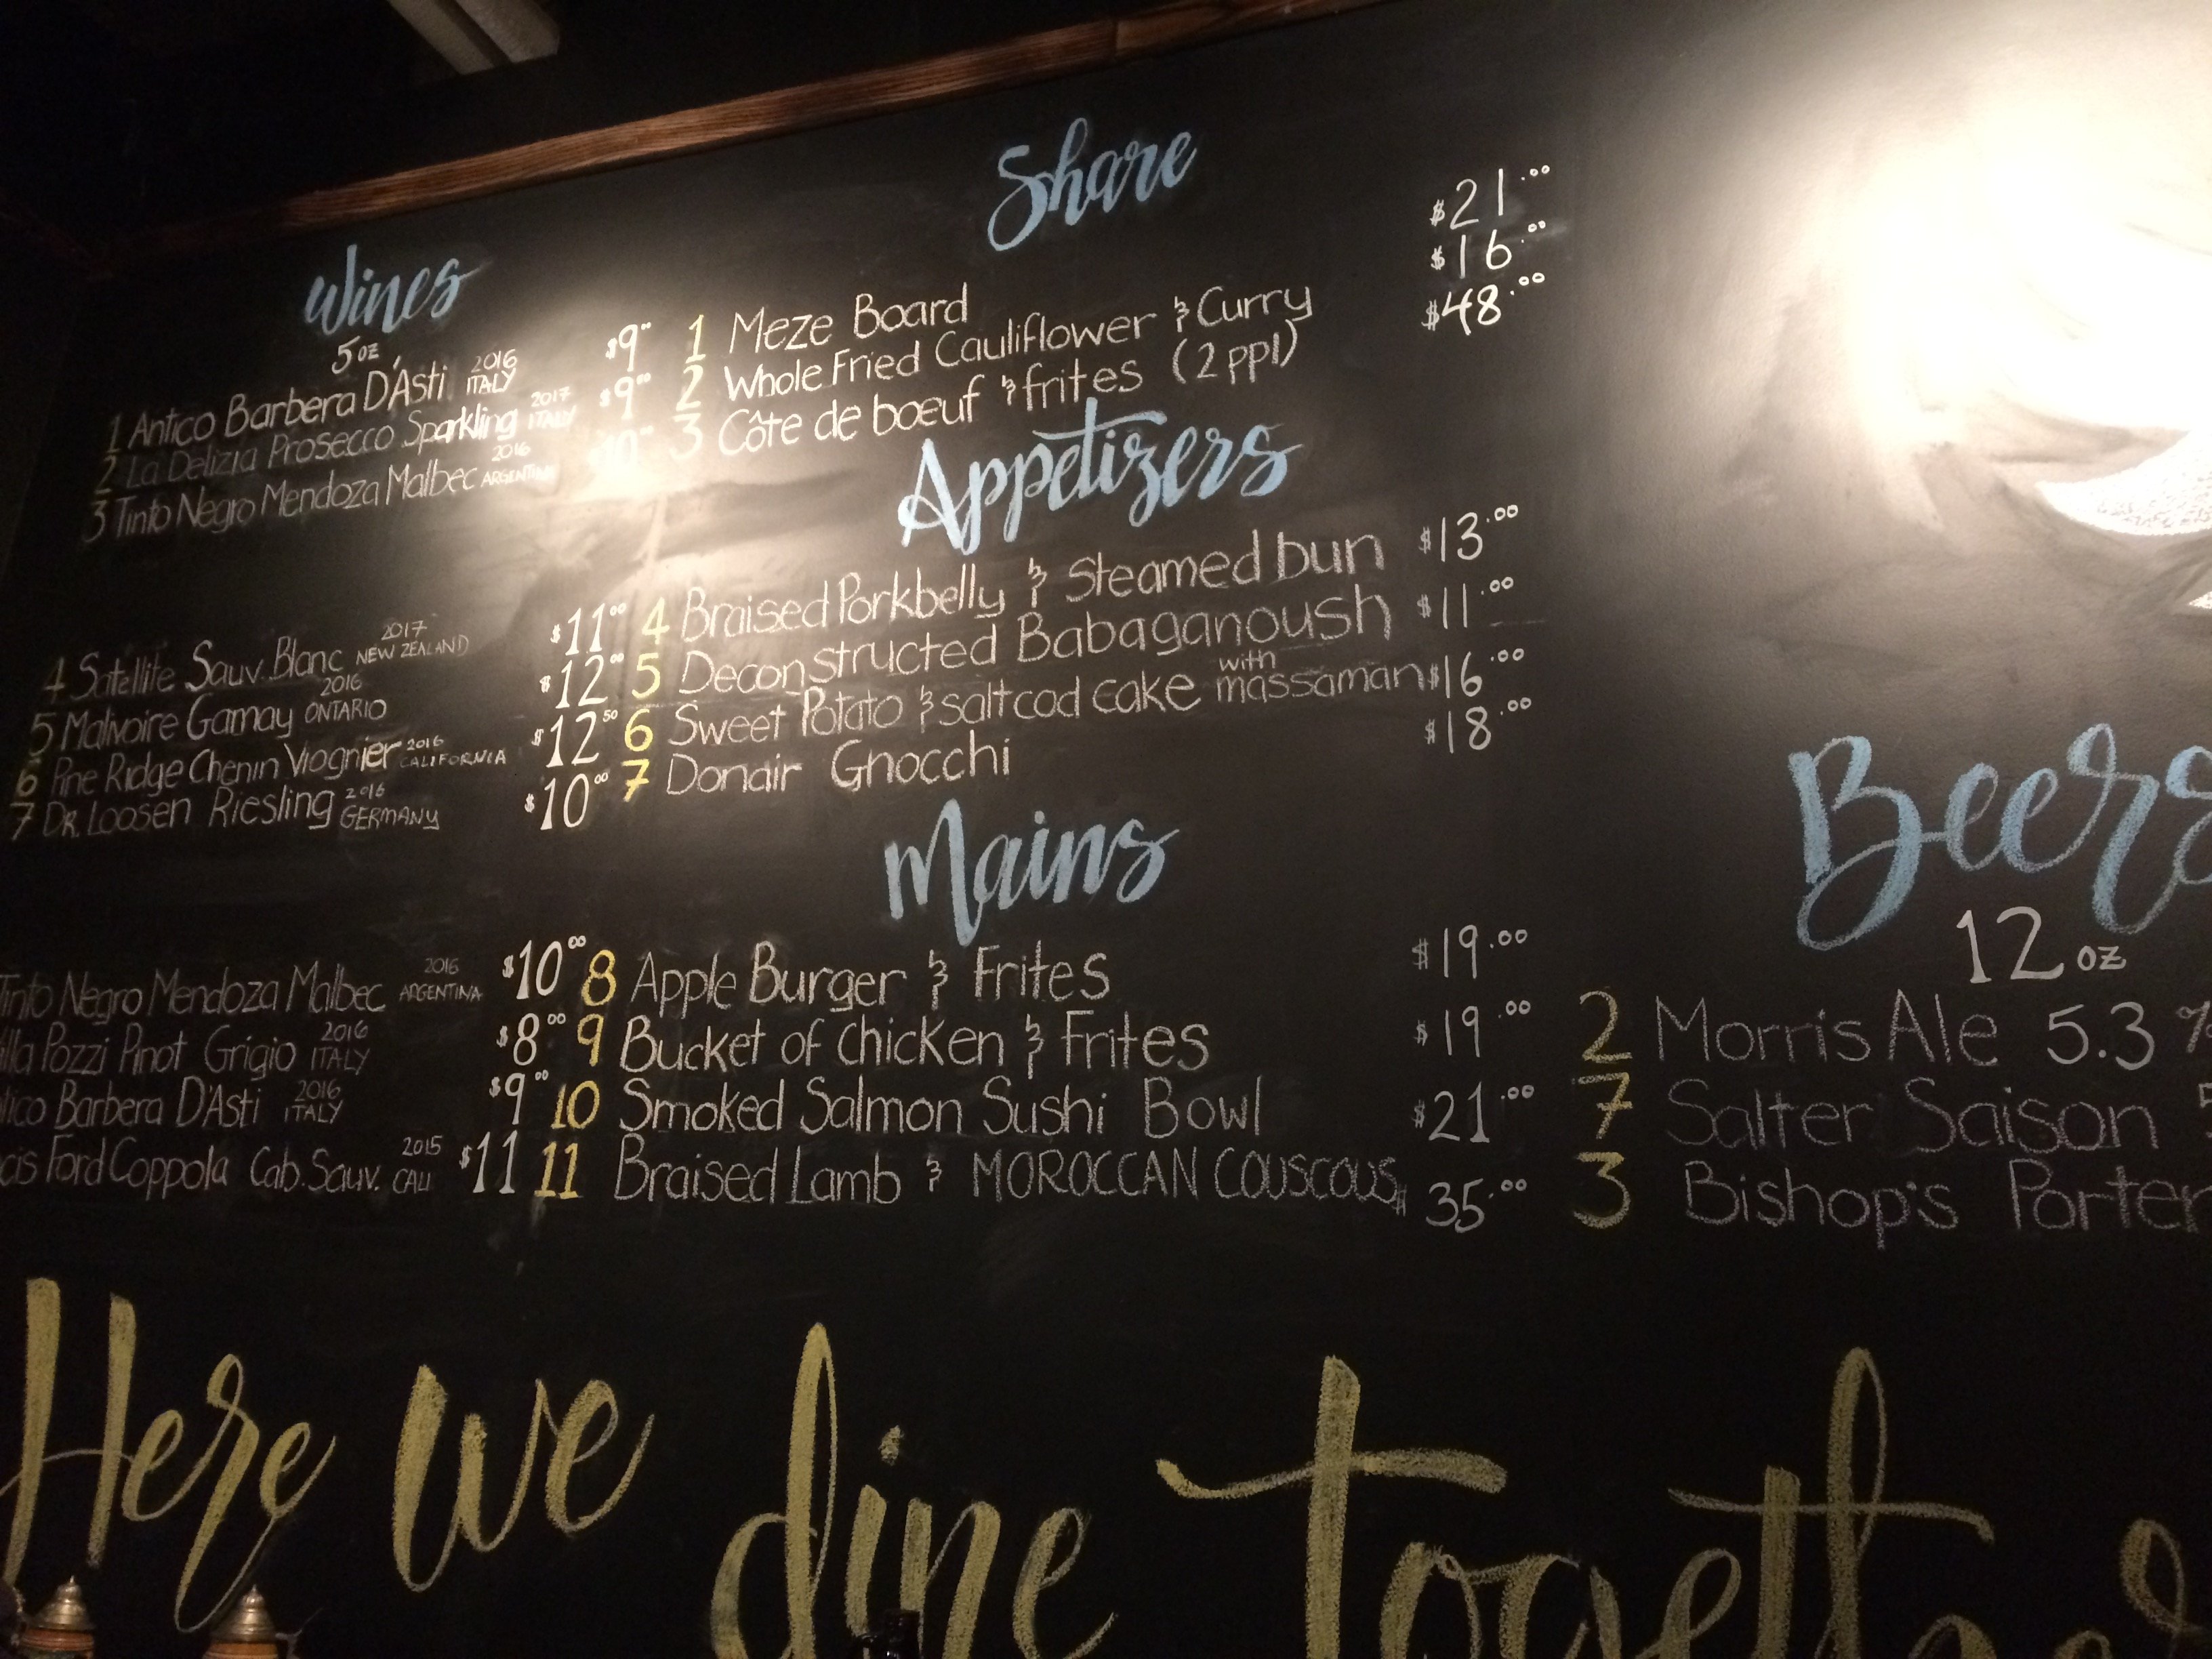 Wines
5oz
1 Antico Barbera D'Asti 2016 ITALY $9.00
2 La Delizia Prosecco Sparkling 2017 ITALY $9.00
3 Tinto Negro Mendoza Malbec 2016 ARGENTINA 10.00
4 Satellite Sauv. Blanc 2017 NEW ZEALAND $11.00
5 Malvoire Gamay 2016 ONTARIO $12.00
6 Pine Ridge Chenin Viognier 2016 CALIFORNIA $12.50
7 DR. LOOSEN Riesling 2016 GERMANY $10.00
Tinto Negro Mendoza Malbec 2016 ARGENTINA $10.00
Pozzi Pinot Grigio 2016 ITALY $8.00
Barbera D'Asti 2016 ITALY $9.00
Ford Coppola Cab. Sauv. 2015 CALI $11
Share
1 Meze Board $21.00
2 Whole Fried Cauliflower & Curry $16.00
3 Côte de bœuf & frites (2 ppl) $48.00
Appetizers
4 Braised Porkbelly & Steamed bun $13.00
5 Deconstructed Babaganoush $11.00
6 Sweet Potato & salt cod cake with massaman $16.00
7 Donair Gnocchi $18.00
Mains
8 Apple Burger & Frites $19.00
9 Bucket of Chicken & Frites $19.00
10 Smoked Salmon Sushi Bowl $21.00
11 Braised Lamb & MOROCCAN COUSCOUS $35.00
Beers
12 oz
2 Morris Ale 5.3 %
7 Salter Saison
3 Bishop's Porter
Here we dine together